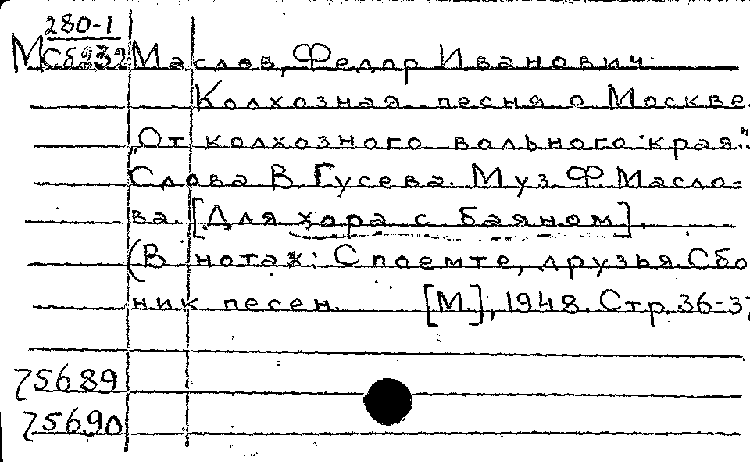 280-1
М Сб932 Маслов, Федор Иванович.
Колхозная песня о Москве.
"От колхозного вольного края."
Слова В. Гусева. Муз. Ф. Масло-
ва. [Для хора с баяном].
(В нотах: Споемте, друзья. Сбо
ник песен. [М.], 1948. Стр. 36-37
75689
75690